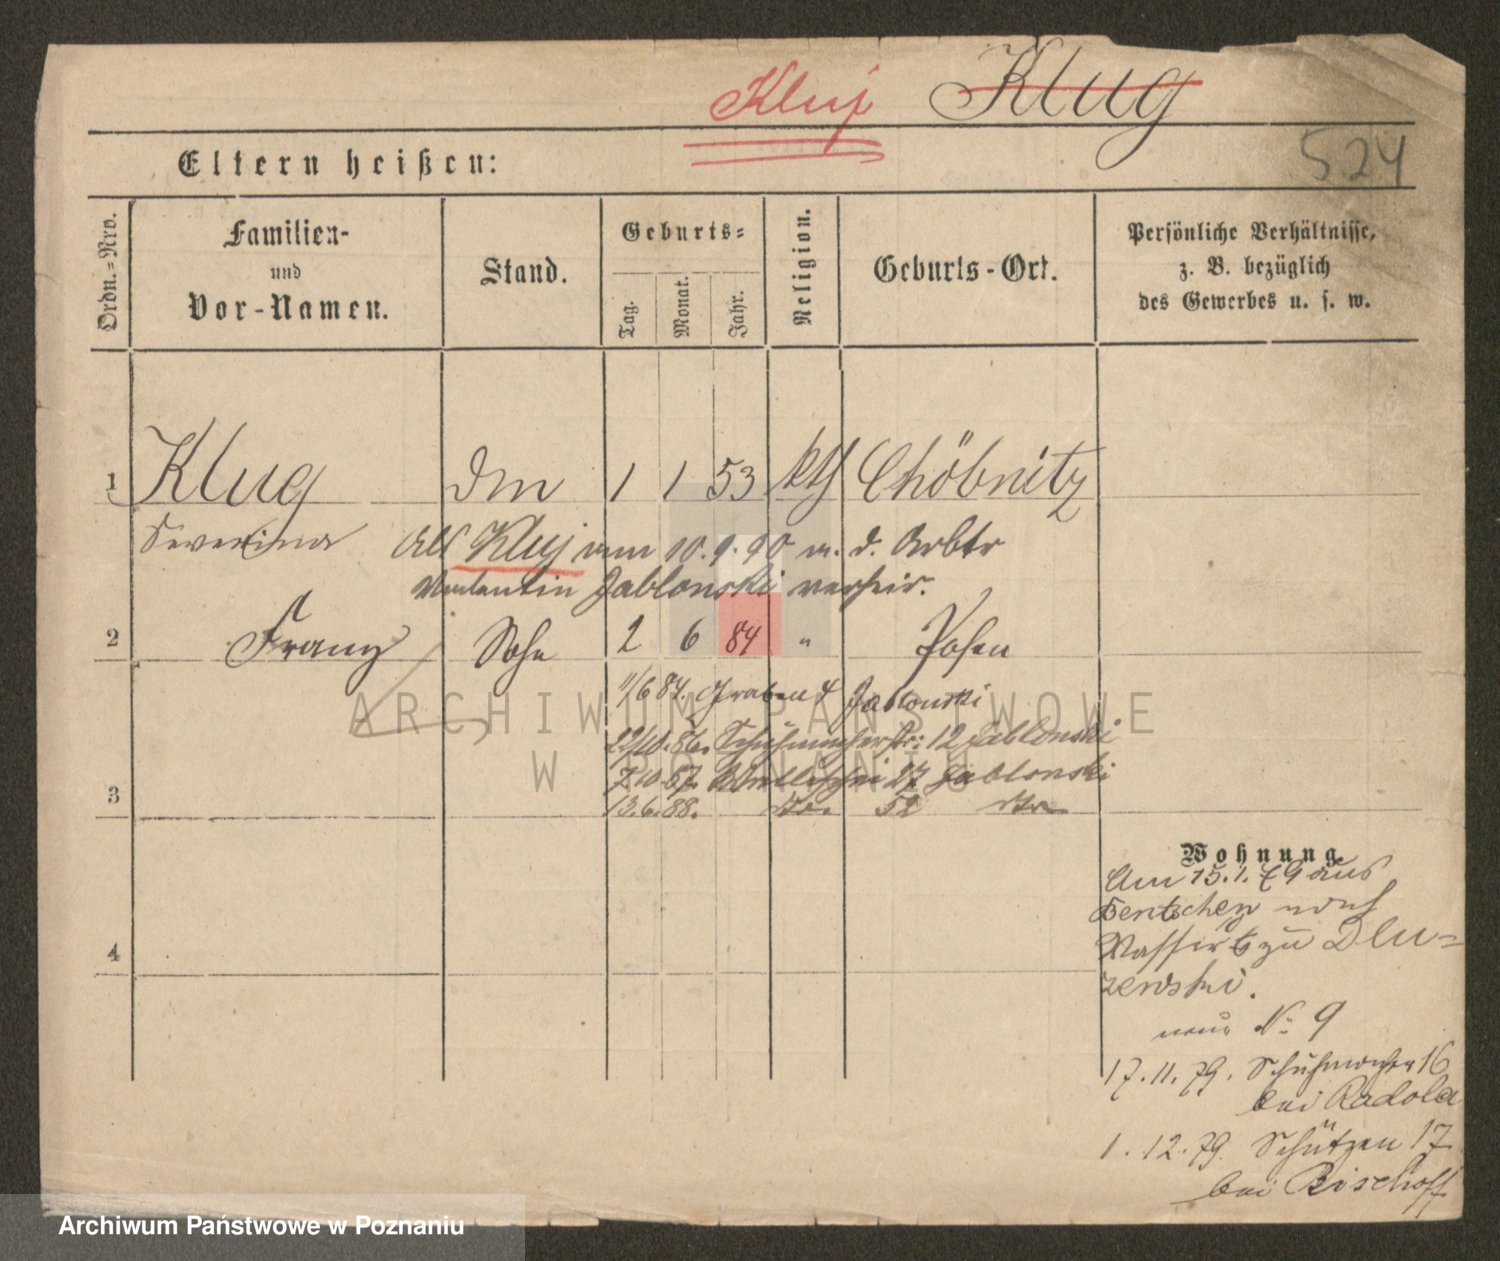 Kluj Klug
524
Eltern heißen:
Ordn.-Nro.
Familien-
und
Vor-Namen.
Stand.
Geburts-
Tag.
Monat.
Jahr.
Religion.
Geburts-Ort.
Persönliche Verhältnisse,
z. B. bezüglich
des Gewerbes u. s. w.
1 Klug Dm 1 1 53 kth Chöbnitz
Severina Als Kluj am 10.9.90 m. d. Arbtr
Valentin Jablonski verheir.
2 Franz Sohn 2 6 84 " Posen
11/6 84. Graben 4 Jablonski
22/10. 86. Schuhmacherstr: 12 Jablonski
7.10.87. Wallischei 27 Jablonski
13.6.88. dto. 52 dto
3
4
Wohnung.
Am 15.1.79 aus
Bentschen nach
Wasserstr zu Dlu-
zewski.
neue No 9
17.11.79. Schuhmacher 16
bei Radola
1.12.79. Schützen 17
bei Bischoff
ARCHIWUM PAŃSTWOWE
W POZNANIU
Archiwum Państwowe w Poznaniu